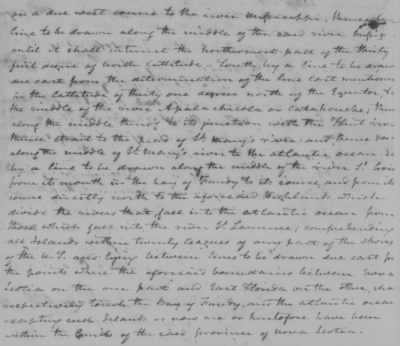 on a due west course to the river Mississippi, thence by a
line to be drawn along the middle of the said river
until it shall intersect the northernmost part of the thirty
first degree of north lattitude. South, by a line to be drawn
due east from the determination of the line last mentioned
in the lattitude of thirty one degrees north of the Equator, to
the middle of the river Apalachicola or Catahouche; thence
along the middle thereof to its junction with the Flint river
thence strait to the head of St. Mary's river; and thence down
along the middle of St Mary's river to the atlantic ocean.
by a line to be drawn along the middle of the river St. Croix
from its mouth in the bay of Fundy to its source, and from its
source directly north to the aforesaid Highlands which
divide the rivers that fall into the atlantic ocean from
those which fall into the river St Laurence; comprehending
all Islands within twenty leagues of any part of the shores
of the U.S. lying between lines to be drawn due east from
the points where the aforesaid boundaries between Nova
Scotia on the one part and East Florida on the other, shall
respectively touch the Bay of Fundy, and the atlantic ocean
excepting such Islands as now are or heretofore have been
within the limits of the said province of Nova Scotia.